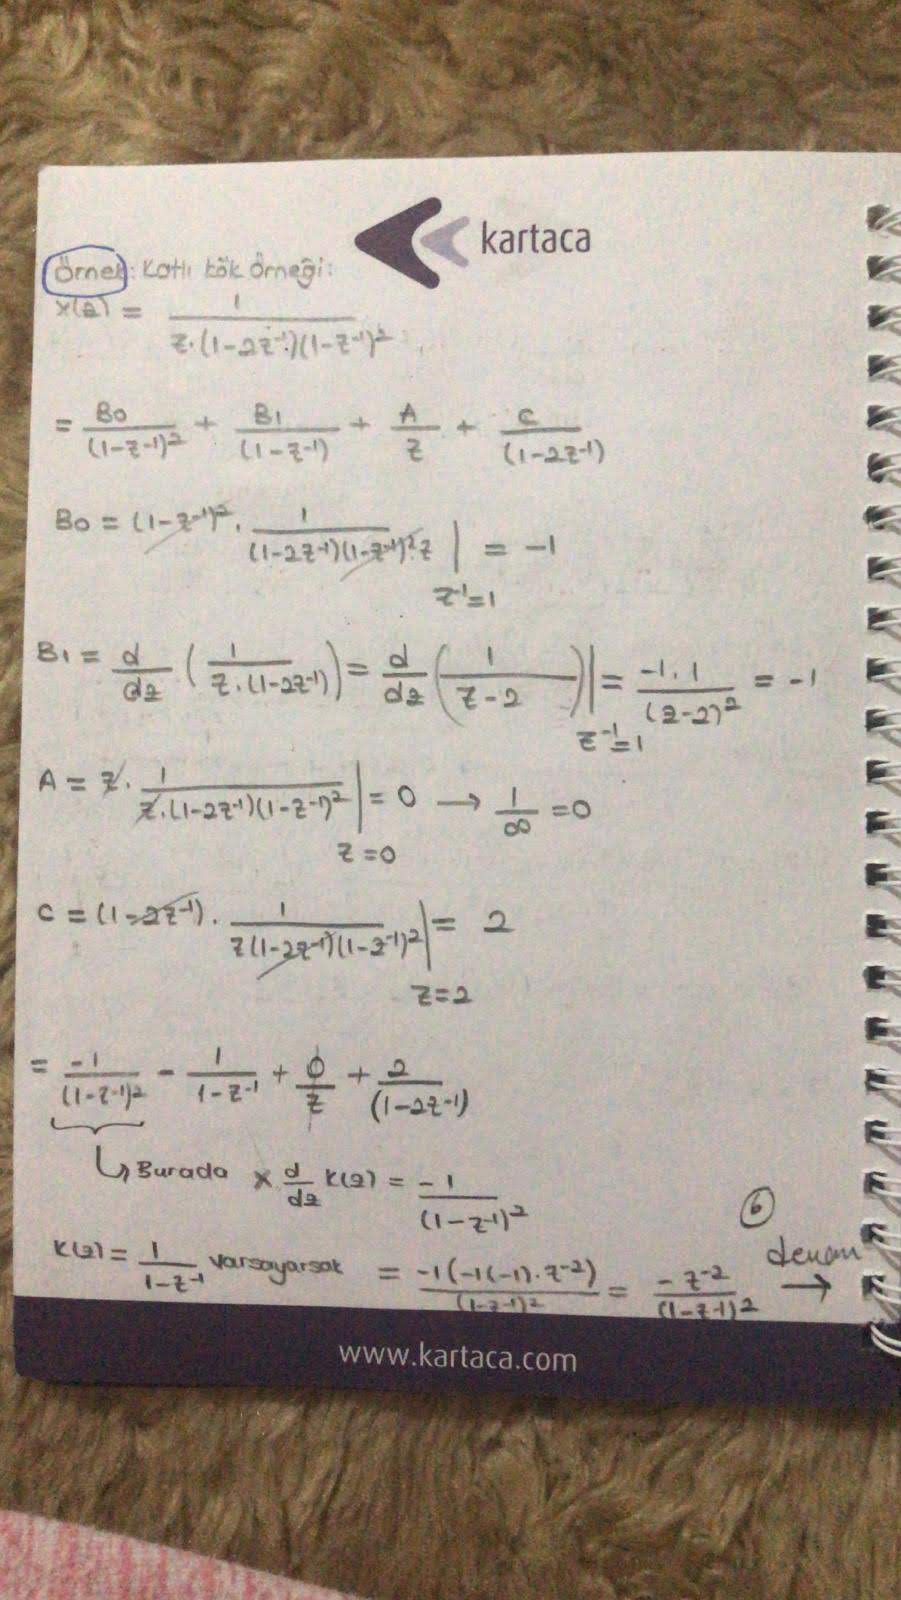 kartaca
Örnek: Katlı kök örneği:
X(z) = 1 / z.(1-2z⁻¹)(1-z⁻¹)²
= B0/(1-z⁻¹)² + B1/(1-z⁻¹) + A/z + C/(1-2z⁻¹)
B0 = (1-z⁻¹)². 1/(1-2z⁻¹)(1-z⁻¹)².z | z⁻¹=1 = -1
B1 = d/dz (1/z.(1-2z⁻¹)) = d/dz (1/z-2) | z⁻¹=1 = -1.1/(z-2)² = -1
A = z. 1/z.(1-2z⁻¹)(1-z⁻¹)² | z=0 = 0 → 1/∞ = 0
C = (1-2z⁻¹). 1/z(1-2z⁻¹)(1-z⁻¹)² | z=2 = 2
= -1/(1-z⁻¹)² - 1/1-z⁻¹ + 0/z + 2/(1-2z⁻¹)
↳ Burada x d/dz K(z) = -1/(1-z⁻¹)²
6
K(z) = 1/1-z⁻¹ varsayarsak = -1(-1(-1).z⁻²)/(1-z⁻¹)² = -z⁻²/(1-z⁻¹)² devam →
www.kartaca.com